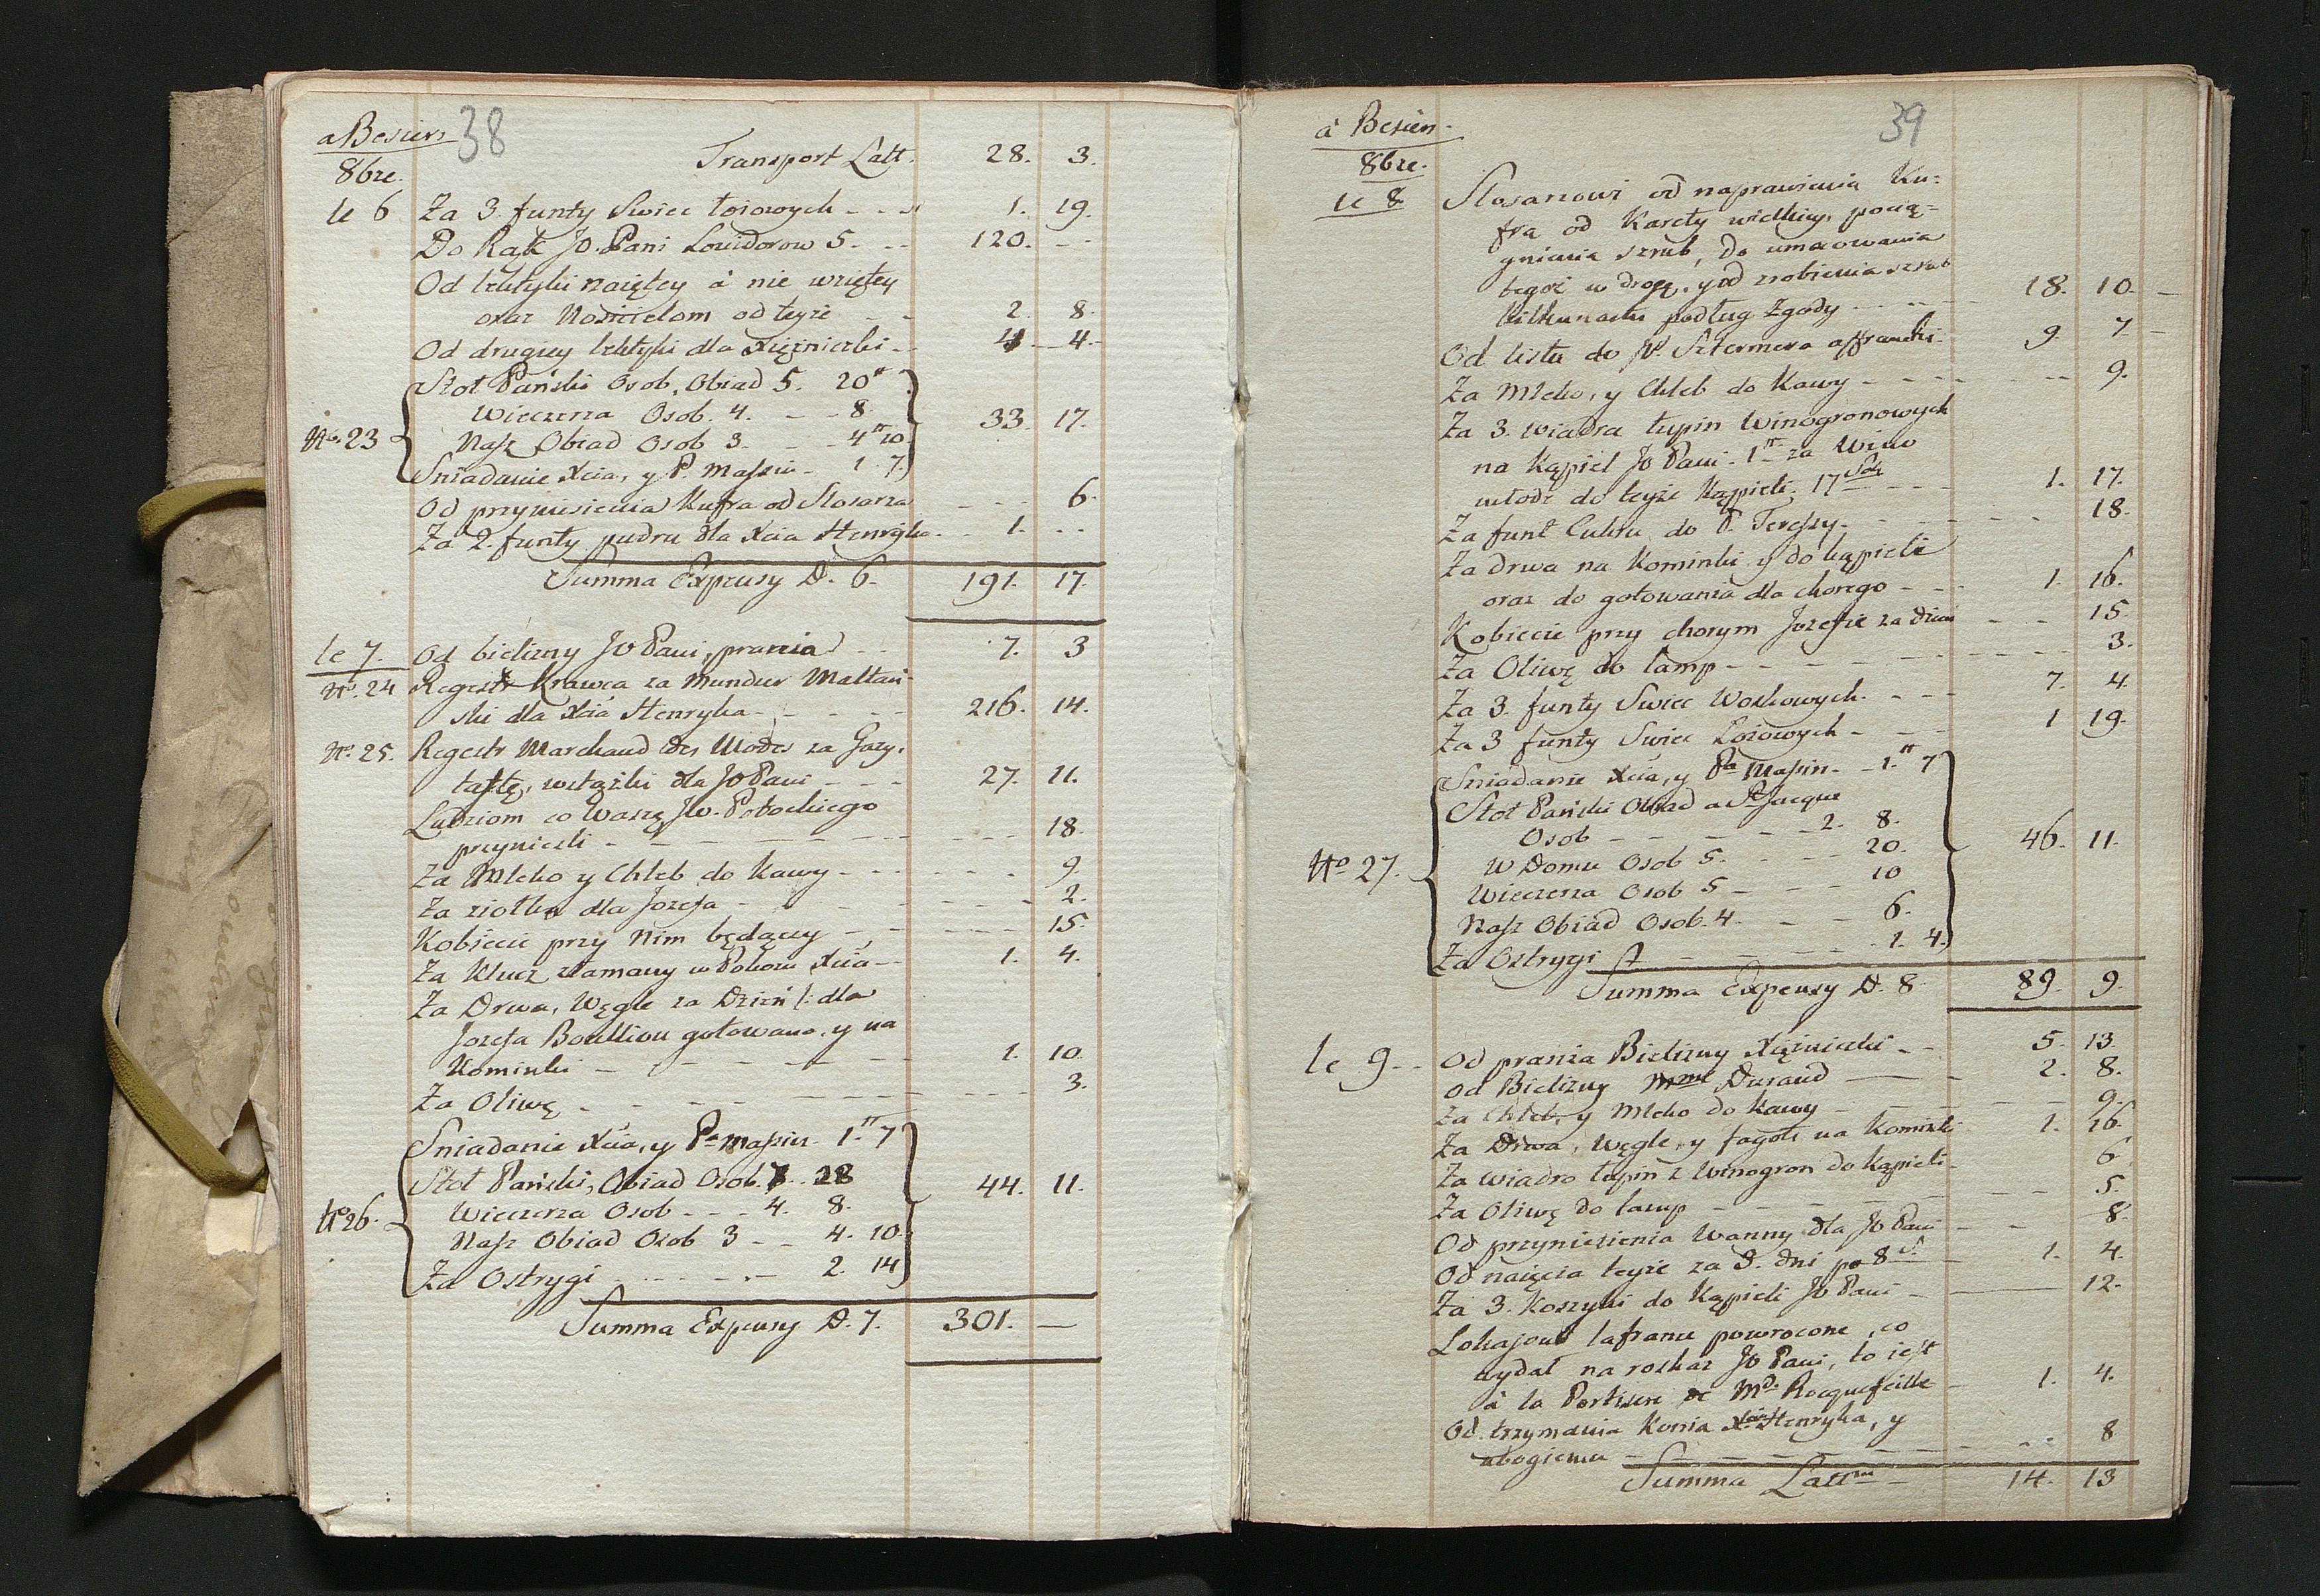 a Besiers 38
8bre. Transport Latt. 28. 3.
le 6 Za 3. funty Swiec łoiowych - - - 1. 19.
Do Rąk Jo. Pani Louidorow 5. - - 120. - -
Od lektyki naiętey à nie wziętey
oraz Nosicielom od teyże - - 2. 8.
Od drugiey lektyki dla Xiężniczki - - 4. - 4. -
Stoł Pański Osob. Obiad 5. 20tt
Wieczerza Osob. 4. - - 8.
No. 23 Nasz Obiad Osob 3. - - 4tt 10. 33. 17.
Sniadanie Xcia, y P. Massin - 1. 7.
Od przyniesienia Kufra od Slosarza - - - 6.
Za 2. funty pudru dla Xcia Henryka - - 1. - -
Summa Expensy D. 6. 191. 17.
le 7. Od bielizny Jo Pani, prania - - 7. 3
No. 24 Regestr Krawca za Mundur Maltań-
ski dla Xcia Henryka - - - - - 216. 14.
No. 25. Regestr Marchand des Modes za Gazy.
taftę, wstążki dla Jo Pani - - - 27. 11.
Ludziom co Wazę Jw. Potockiego
przyniesli - - - - - - - - - 18.
Za Mleko y Chleb do Kawy - - - - - - 9.
Za ziołka dla Jozefa - - - - - - - 2.
Kobiecie przy Nim będącey - - - - - - 15.
Za Klucz złamany w Pokoiu Xcia - - 1. 4.
Za Drwa, Węgle za Dzień /: dla
Jozefa Boullion gotowano, y na
Kominki - - - - - - 1. 10.
Za Oliwę - - - - - - - - - 3.
Sniadanie Xcia, y Pa Massin - 1.tt 7
Stoł Pański, Obiad Osob. 7. - 28
No 26. Wieczerza Osob - - - 4. 8. 44. 11.
Nasz Obiad Osob 3 - - 4. 10.
Za Ostrygi - - - - - - 2. 14
Summa Expensy D. 7. 301. —
à Besien - 39
8bre.
le 8 Slosarzowi od naprawienia Ku-
fra od Karety wielkiey, pocią-
gnienia szrub, do umocowania
tegoż w drogę, y od zrobienia szrub
kilkunastu podług Zgody - - - - 18. 10. -
Od listu do Pa. Sztermera affranchi - 9. 7 -
Za Mleko, y Chleb do Kawy - - - - - - 9.
Za 3. wiadra łupin Winogronowych
na Kąpiel Jo Pani - 1tt - za Wino
młode do teyże Kąpieli, 17 Sols - - - 1. 17.
Za funt Cukru do P. Teressy - - - - - - 18.
Za drwa na Kominki y do kąpieli
oraz do gotowania dla chorego - - - 1. 16.
Kobiecie przy chorym Jozefie za dzień - - 15
Za Oliwę do lamp - - - - - - - - 3.
Za 3. funty Swiec Woskowych. - - - 7. 4.
Za 3 funty Swiec Łoiowych - - - 1 19.
Sniadanie Xcia, y Pa Massin - - 1.tt 7
Stoł Pański Obiad a St Jacque
Osob - - - - - 2. 8.
No 27. W Domu Osob 5. - - - 20. 46. 11.
Wieczerza Osob 5 - - - 10
Nasz Obiad Osob. 4. - - 6.
Za Ostrygi - - - - - 1. 4.
Summa Expensy D. 8. 89. 9.
le 9 - - Od prania Bielizny Xiężniczki - - 5. 13.
Od Bielizny Mme Durand - - 2. 8.
Za Chleb, y Mleko do Kawy - - - - 9.
Za Drwa, Węgle y fagots na Kominki 1. 16.
Za wiadro łupin z winogron do Kąpieli - 6
Za Oliwę do lamp - - - - - - 5.
Od przyniesienia Wanny dla Jo Pani - - 8.
Od naięcia teyże za 3. dni po 8 s. - 1. 4.
Za 3. Koszyki do Kąpieli Jo Pani - - 12.
Lokajowi lafrance powrocone, co
wydał na roskaz Jo Pani, to iest
à la Portiere de Md. Rocquefeille - 1. 4.
Od trzymania Konia Xcia Henryka, y
ubogiemu - - - - - - - - - 8
Summa Lattus - 14. 13